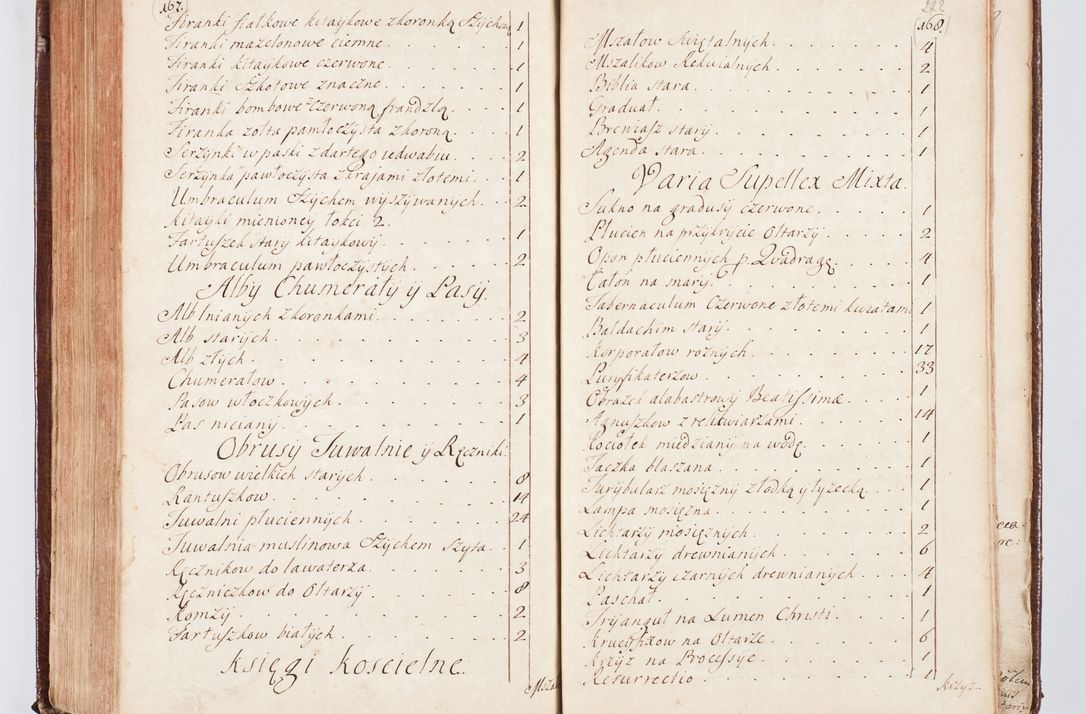 167.
Firanki fiatkowe kitaykowe z koronką Szÿchową 1
Firanki mazelonowe ciemne 1
Firanki kitaykowe czerwone 1
Firanki Szkotowe znaczne 1
Firanki bombowe czerwoną frandzlą 1
Firanka zolta pawłoczÿsta z koroną 1
Serzÿnki w paski z dartego iedwabiu 2
Serzÿnka pawłoczÿsta z krajami złotemi 1
Umbraculum Szÿchem wÿszÿwanÿch 2
kitayki mienioneÿ łokci 2
Fartuszek starÿ kitaykowÿ 1
Umbraculum pawłoczÿstÿch 2
Alby Chumerały ÿ Pasÿ
Alb lnianÿch z koronkami 2
Alb starÿch 3
Alb złÿch 4
Chumerałow 4
Pasow włoczkowÿch 3
Pas niciany 1
Obrusÿ Tuwalnie ÿ Ręczniki
Obrusow wielkich starÿch 8
Rantuszkow 14
Tuwalni płuciennÿch 24
Tuwalnia muslinowa Szÿchem Szÿta 1
Ręcznikow do lawaterza 3
Ręczniczkow do Ołtarzÿ 8
Komżÿ 2
Fartuszkow białÿch 2
Księgi koscielne
Mszał
222
168.
Mszałow Swiętalnÿch 4
Mszalikow Rekwialnÿch 2
Biblia stara 1
Graduał 1
Breniasz starÿ 1
Agenda stara 1
Varia Supellex Mixta
Sukno na gradusÿ czerwone 1
Płucien na przÿkrÿcie Ołtarzÿ 2
Opon płuciennÿch p. Quadragę 4
Całon na marÿ 1
Tabernaculum Czerwone złotemi kwiatami 1
Baldachim starÿ 1
Korporałow roznÿch 17
Purÿfikaterzow 33
Obrazek alabastrowÿ Beatissimæ 1
Agnuszkow z relikwiarzami 14
Kociołek miedzianÿ na wodę 1
Taczka blaszana 1
Turÿbularz mosięznÿ z łodką ÿ łyzecką 1
Lampa mosięzna 1
Lichtarzÿ mosięznÿch 2
Lichtarzÿ drewnianÿch 6
Lichtarzÿ czarnÿch drewnianÿch 4
Paschał 1
Trÿangul na Lumen Christi 1
Krucifixow na Ołtarze 6
Krzÿz na Processÿe 1
Resurrectio 1
Krzyż